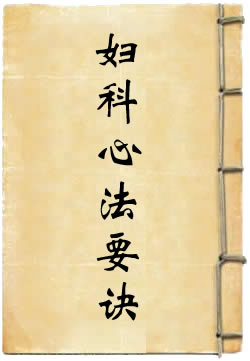 妇科心法要诀